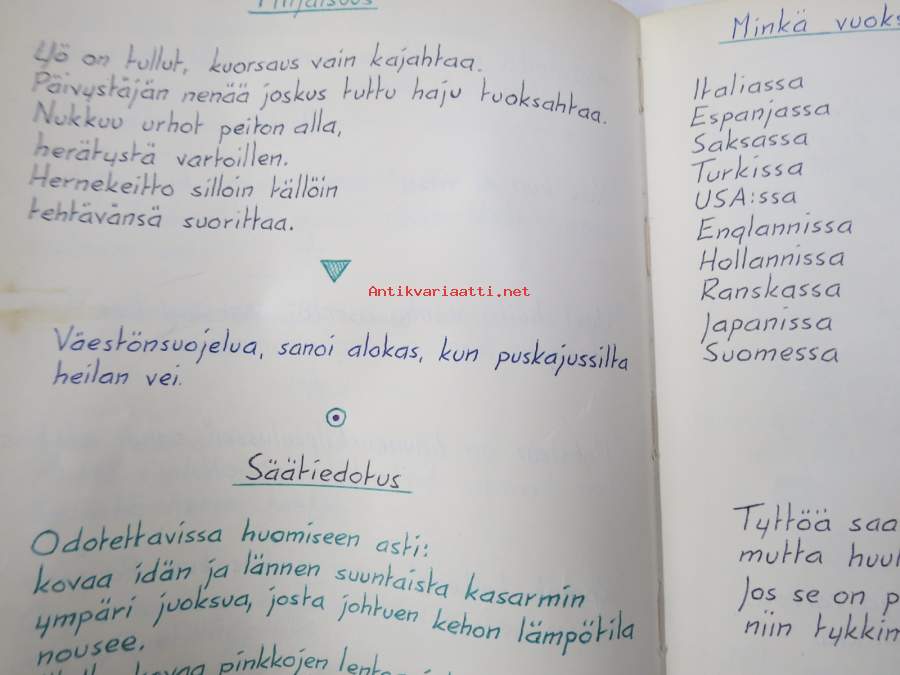 Hiljaisuus
Yö on tullut, kuorsaus vain kajahtaa.
Päivystäjän nenää joskus tuttu haju tuoksahtaa.
Nukkuu urhot peiton alla,
herätystä vartoillen.
Hernekeitto silloin tällöin
tehtävänsä suorittaa.
Antikvariaatti.net
Väestönsuojelua, sanoi alokas, kun puskajussilta
heilan vei.
Säätiedotus
Odotettavissa huomiseen asti:
kovaa idän ja lännen suuntaista kasarmin
ympäri juoksua, josta johtuen kehon lämpötila
nousee.
kovaa pinkkojen
Minkä vuoks
Italiassa
Espanjassa
Saksassa
Turkissa
USA:ssa
Englannissa
Hollannissa
Ranskassa
Japanissa
Suomessa
Tyttöä saa
mutta huul
Jos se on p
niin tykkim